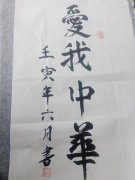 愛我中華
壬寅年六月書